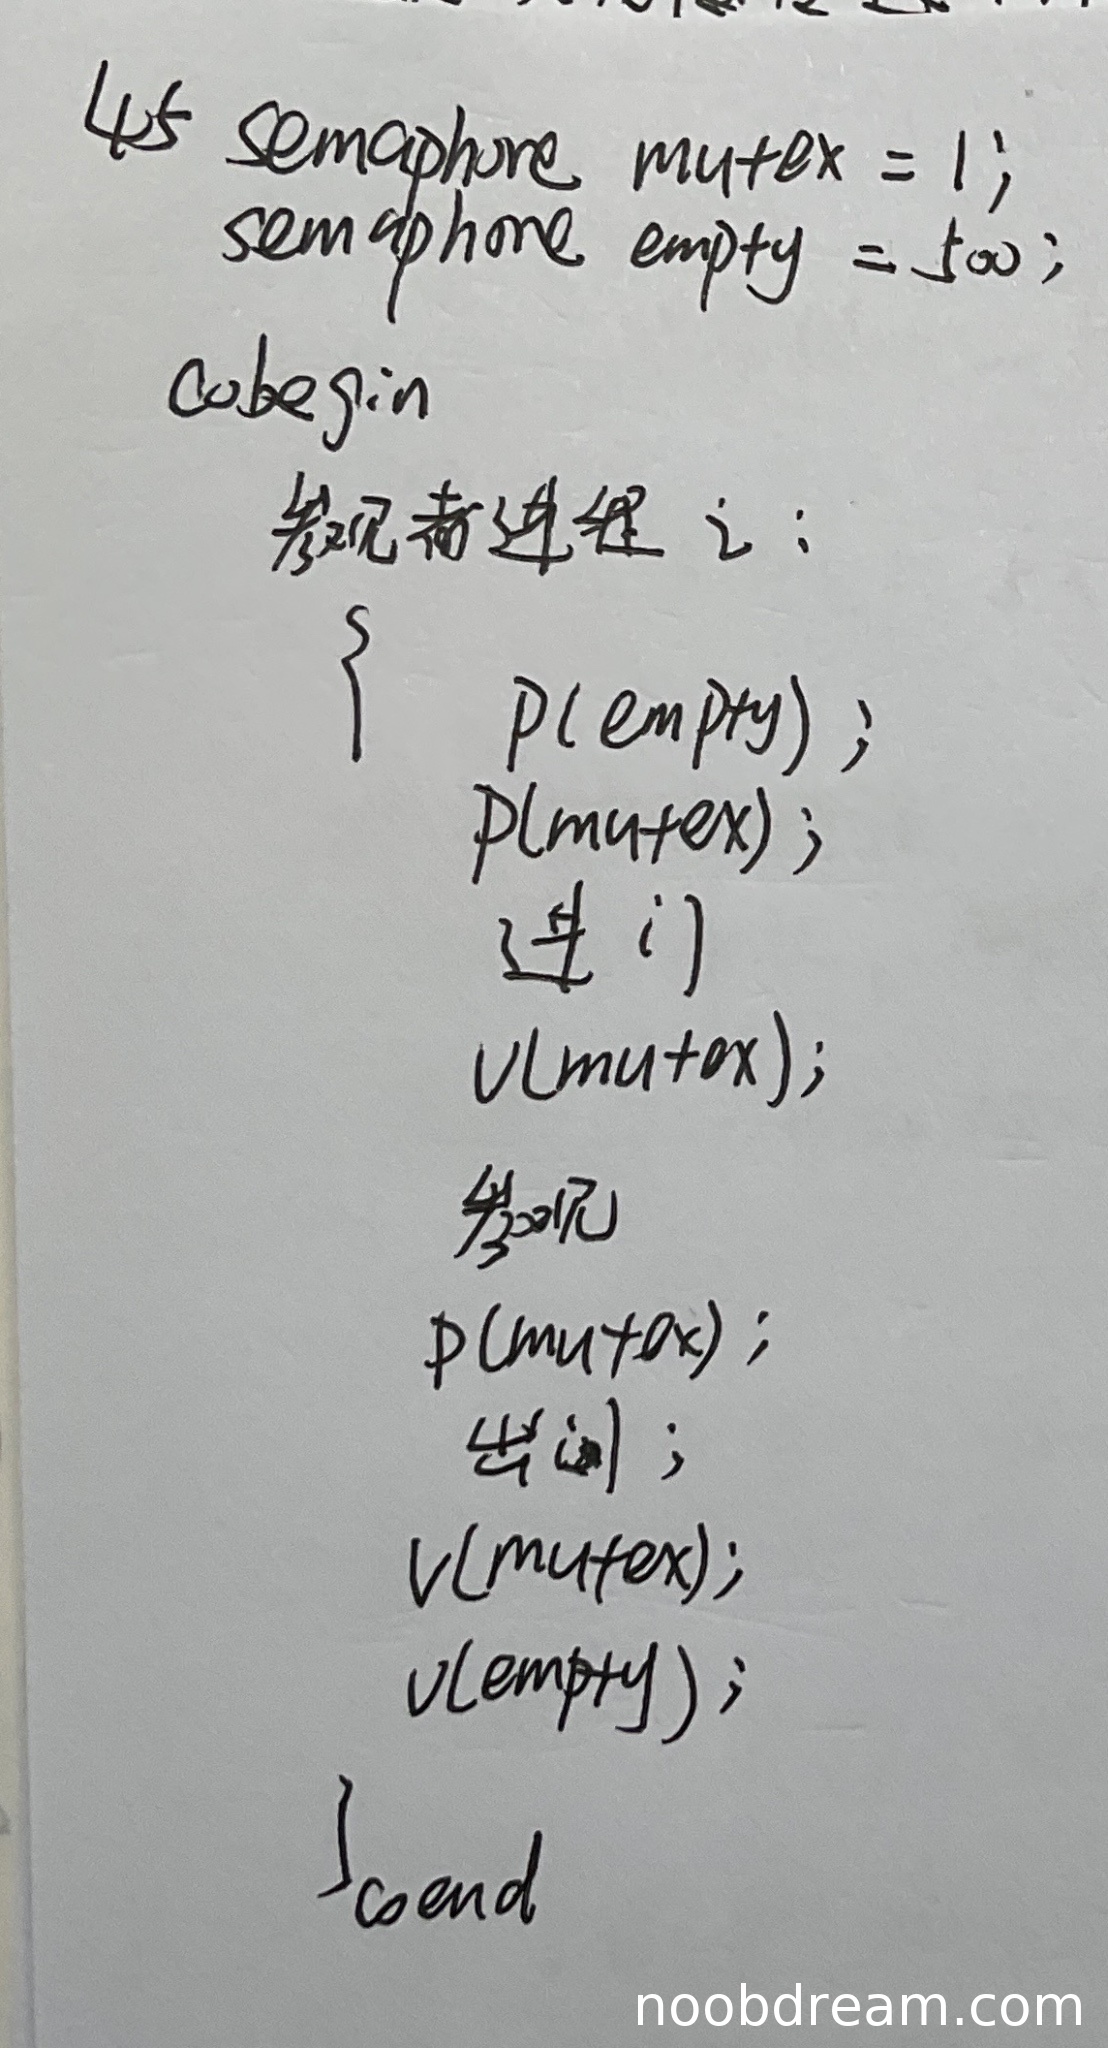 45 semaphore mutex = 1;
semaphore empty = 500;
cobegin
参观者进程 i :
{ P(empty);
P(mutex);
进门
V(mutex);
参观
P(mutex);
出门;
V(mutex);
V(empty);
}
coend
noobdream.com